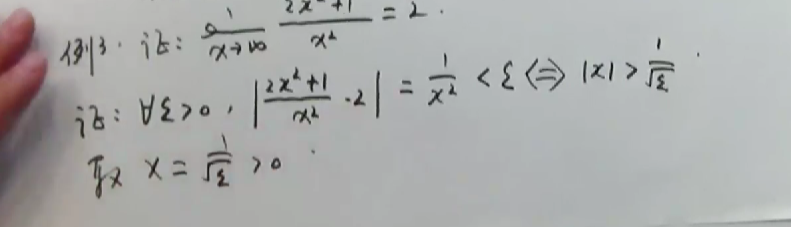 例3. 证: lim x→∞ (2x²+1)/x² = 2.
证: ∀ε>0, |(2x²+1)/x² - 2| = 1/x² < ε ⟺ |x| > 1/√ε.
取 X = 1/√ε > 0.